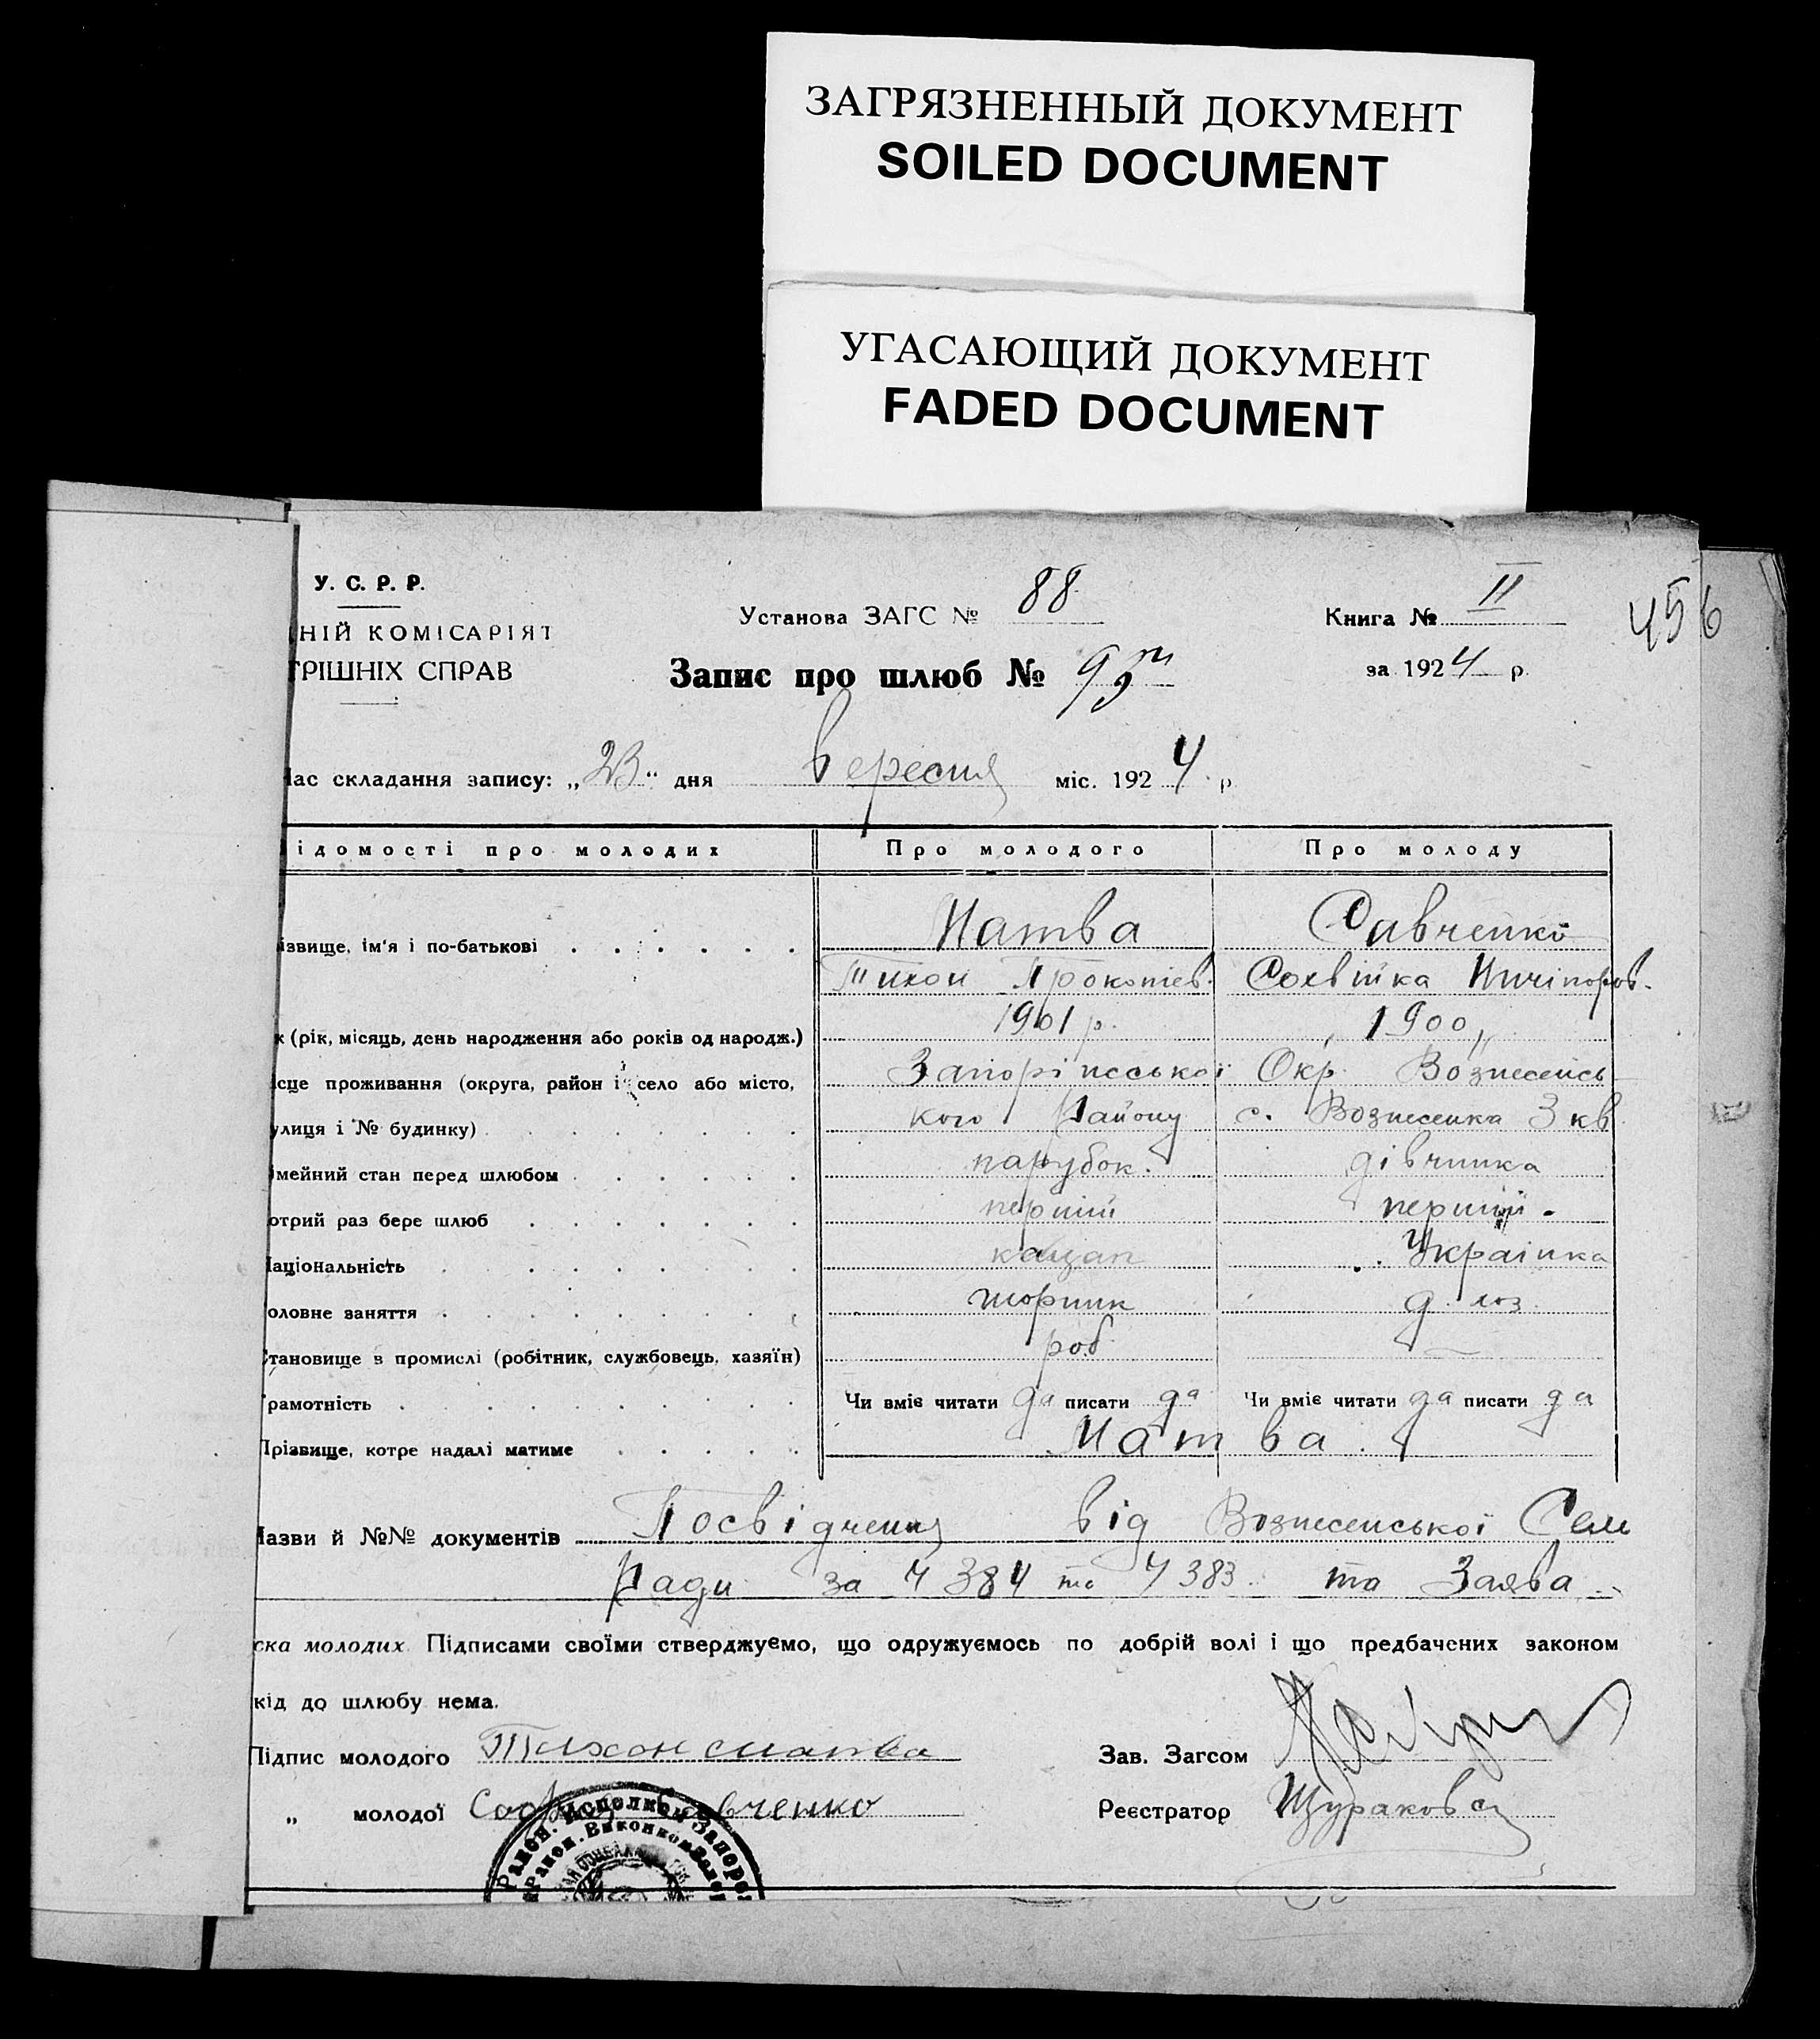 ЗАГРЯЗНЕННЫЙ ДОКУМЕНТ
SOILED DOCUMENT
УГАСАЮЩИЙ ДОКУМЕНТ
FADED DOCUMENT
У. С. Р. Р.
НІЙ КОМІСАРІЯТ
ТРІШНІХ СПРАВ
Установа ЗАГС № 88
Книга № II
456
Запис про шлюб №
за 1924 р.
Час складання запису: „23" дня вересня міс. 1924 р
ідомості про молодих Про молодого Про молоду
ізвище, ім'я і по-батькові . . . . . . Матва Савченко
Тихон Прокопіев. Сохвійка Ничіпоров.
к (рік, місяць, день народження або років од народж.) 1901 р. 1900 „
ісце проживання (округа, район і село або місто, Запоріжської Окр. Вознесенсь
улиця і № будинку) . . . . кого Району с. Вознесенка 3 кв
імейний стан перед шлюбом . . . . . . парубок. дівчинка
отрий раз бере шлюб . . . . . . . перший перший -
Національність . . . . . . . . кацап Українка
оловне заняття . . . . . . . . д. хоз.
Становище в промислі (робітник, службовець, хазяїн) роб
Грамотність . . . . . . . . Чи вміє читати да писати да Чи вміє читати да писати да
Прізвище, котре надалі матиме . . . . . Матва.
Назви й №№ документів Посвідчення від Вознесенської Сель
Ради за 4384 та 4383 та Заява
ска молодих. Підписами своїми стверджуємо, що одружуємось по добрій волі і що предбачених законом
кід до шлюбу нема.
Підпис молодого Тихон Матва Зав. Загсом
„ молодої Савченко Реєстратор
Район. Исполком Запоро
Район. Виконком